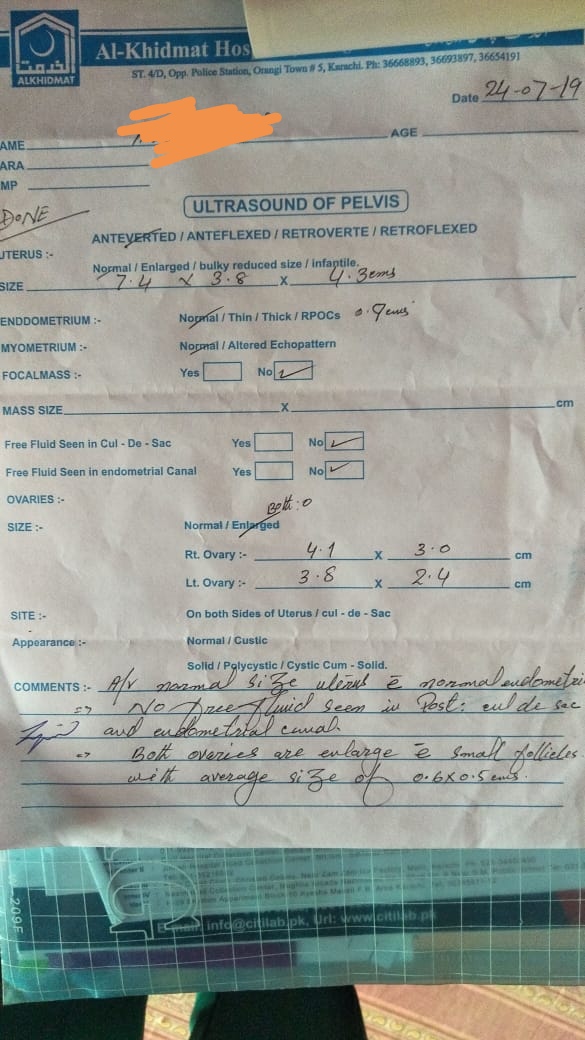 الخدمت
ALKHIDMAT
Al-Khidmat Hos
ST. 4/D, Opp. Police Station, Orangi Town # 5, Karachi. Ph: 36668893, 36693897, 36654191
Date 24-07-19
AME AGE
ARA
MP
ULTRASOUND OF PELVIS
DONE
ANTEVERTED / ANTEFLEXED / RETROVERTE / RETROFLEXED
UTERUS :-
Normal / Enlarged / bulky reduced size / infantile.
SIZE 7.4 x 3.8 X 4.3cms
ENDDOMETRIUM :- Normal / Thin / Thick / RPOCs 0.9cms
MYOMETRIUM :- Normal / Altered Echopattern
FOCALMASS :- Yes No
MASS SIZE X cm
Free Fluid Seen in Cul - De - Sac Yes No
Free Fluid Seen in endometrial Canal Yes No
OVARIES :-
Both:o
SIZE :- Normal / Enlarged
Rt. Ovary :- 4.1 X 3.0 cm
Lt. Ovary :- 3.8 X 2.4 cm
SITE :- On both Sides of Uterus / cul - de - Sac
Appearance :- Normal / Custic
Solid / Polycystic / Cystic Cum - Solid.
COMMENTS :- A/v normal size uterus c̄ normal endometri
=> No free fluid seen in Post: cul de sac
and endometrial canal.
=> Both overies are enlarge c̄ small follicles
with average size of 0.6x0.5 cms.
209F
E-mail: info@citilab.pk, Url: www.citilab.pk